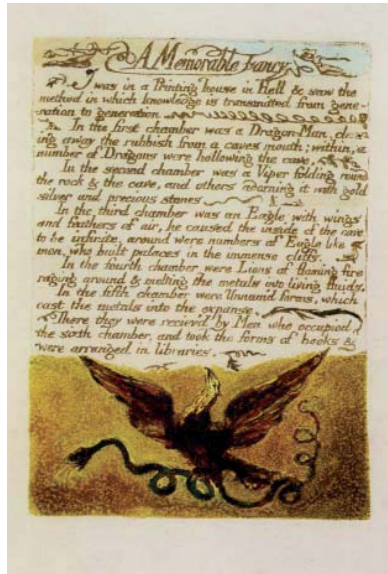 A Memorable Fancy
I was in a Printing house in Hell & saw the
method in which knowledge is transmitted from gene-
-ration to generation
In the first chamber was a Dragon-Man, clear-
ing away the rubbish from a caves mouth; within, a
number of Dragons were hollowing the cave,
In the second chamber was a Viper folding round
the rock & the cave, and others adorning it with gold
silver and precious stones
In the third chamber was an Eagle with wings
and feathers of air, he caused the inside of the cave
to be infinite, around were numbers of Eagle like
men, who built palaces in the immense cliffs.
In the fourth chamber were Lions of flaming fire
raging around & melting the metals into living fluids.
In the fifth chamber were Unnamd forms, which
cast the metals into the expanse.
There they were reciev'd by Men who occupied
the sixth chamber, and took the forms of books &
were arranged in libraries.